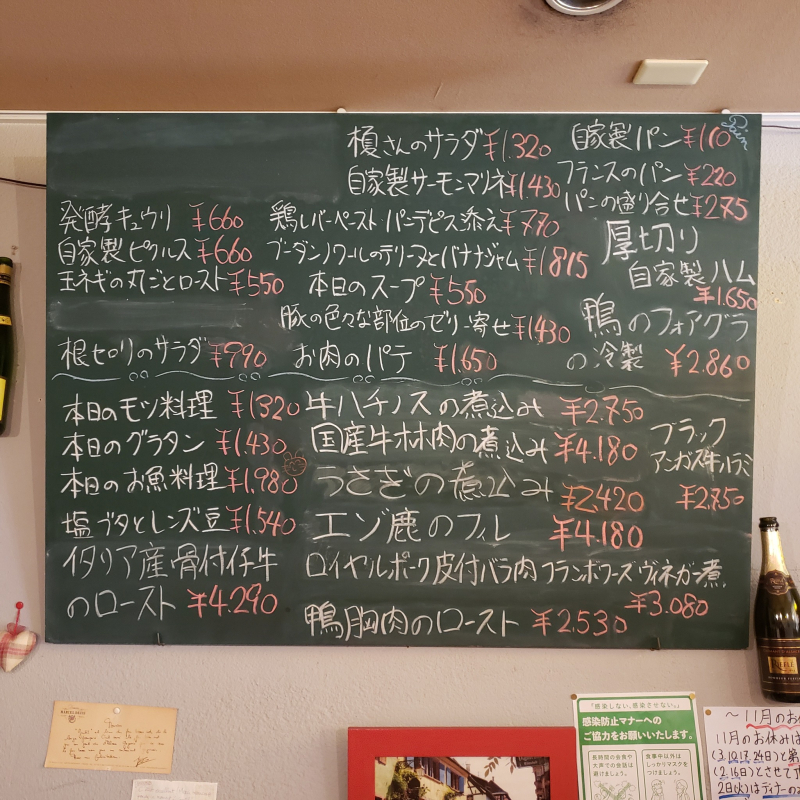 榎さんのサラダ ¥1.320
自家製サーモンマリネ ¥1.430
自家製パン ¥110
フランスのパン ¥220
パンの盛り合せ ¥275
Pain
発酵キュウリ ¥660
自家製ピクルス ¥660
玉ネギの丸ごとロースト ¥550
鶏レバーペースト・パンデピス添え ¥770
ブーダンノワールのテリーヌとバナナジャム ¥1815
本日のスープ ¥550
豚の色々な部位のゼリー寄せ ¥1430
厚切り
自家製ハム
¥1.650
鴨のフォアグラ
の冷製 ¥2.860
根セロリのサラダ ¥990
お肉のパテ ¥1.650
本日のモツ料理 ¥1320
本日のグラタン ¥1.430
本日のお魚料理 ¥1.980
塩ブタとレンズ豆 ¥1.540
イタリア産骨付仔牛
のロースト ¥4.290
牛ハチノスの煮込み ¥2.750
国産牛ホホ肉の煮込み ¥4.180
うさぎの煮込み ¥2420
エゾ鹿のフィレ ¥4.180
ロイヤルポーク皮付バラ肉フランボワーズヴィネガー煮
¥3.080
鴨胸肉のロースト ¥2.530
ブラック
アンガス牛ハラミ
¥2750
「感染しない、感染させない。」
感染防止マナーへの
ご協力をお願いいたします。
長時間の会食や
大声での会話は
避けましょう。
食事中以外は
しっかりマスクを
つけましょう。
〜11月のお
11月のお休みは
(3.10.17.24日)と第
(2.16日)とさせて
2日(火)はディナーの